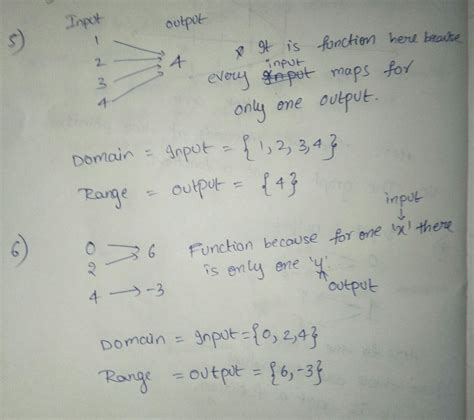 Input output
5) 1
2 4
3
4
It is function here because
every input maps for
only one output.
Domain = Input = {1,2,3,4}
Range = output = {4}
6) 0 6
2
4 -3
input
Function because for one 'x' there
is only one 'y'
output
Domain = Input = {0,2,4}
Range = output = {6,-3}